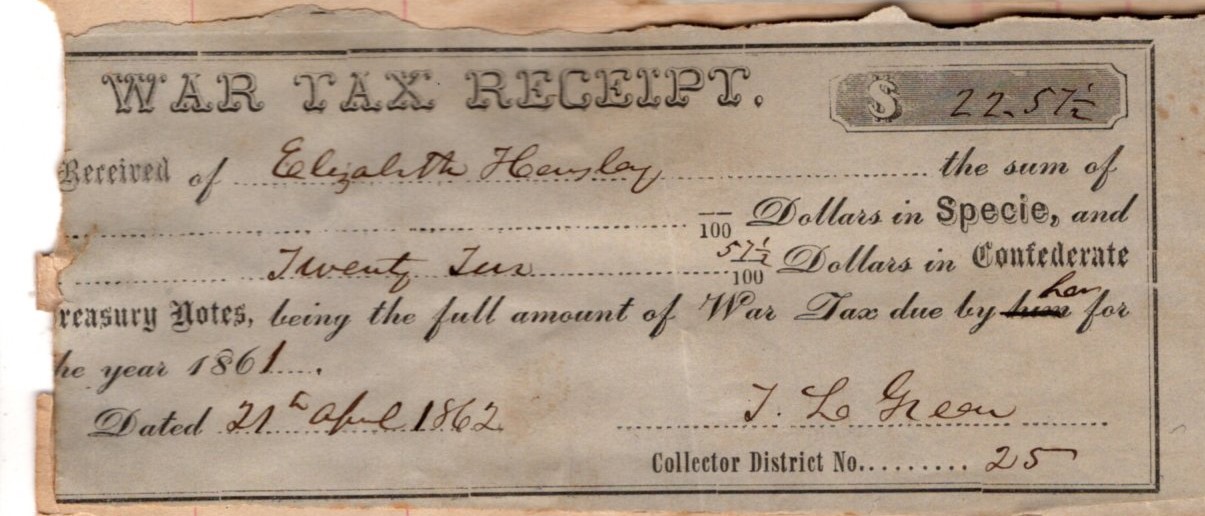 WAR TAX RECEIPT. $ 22.57½
Received of Elizabeth Hensley the sum of
/100 Dollars in Specie, and
Twenty Two 57½/100 Dollars in Confederate
reasury Notes, being the full amount of War Tax due by him her for
he year 1861.
Dated 21th April 1862 T. L Green
Collector District No. 25